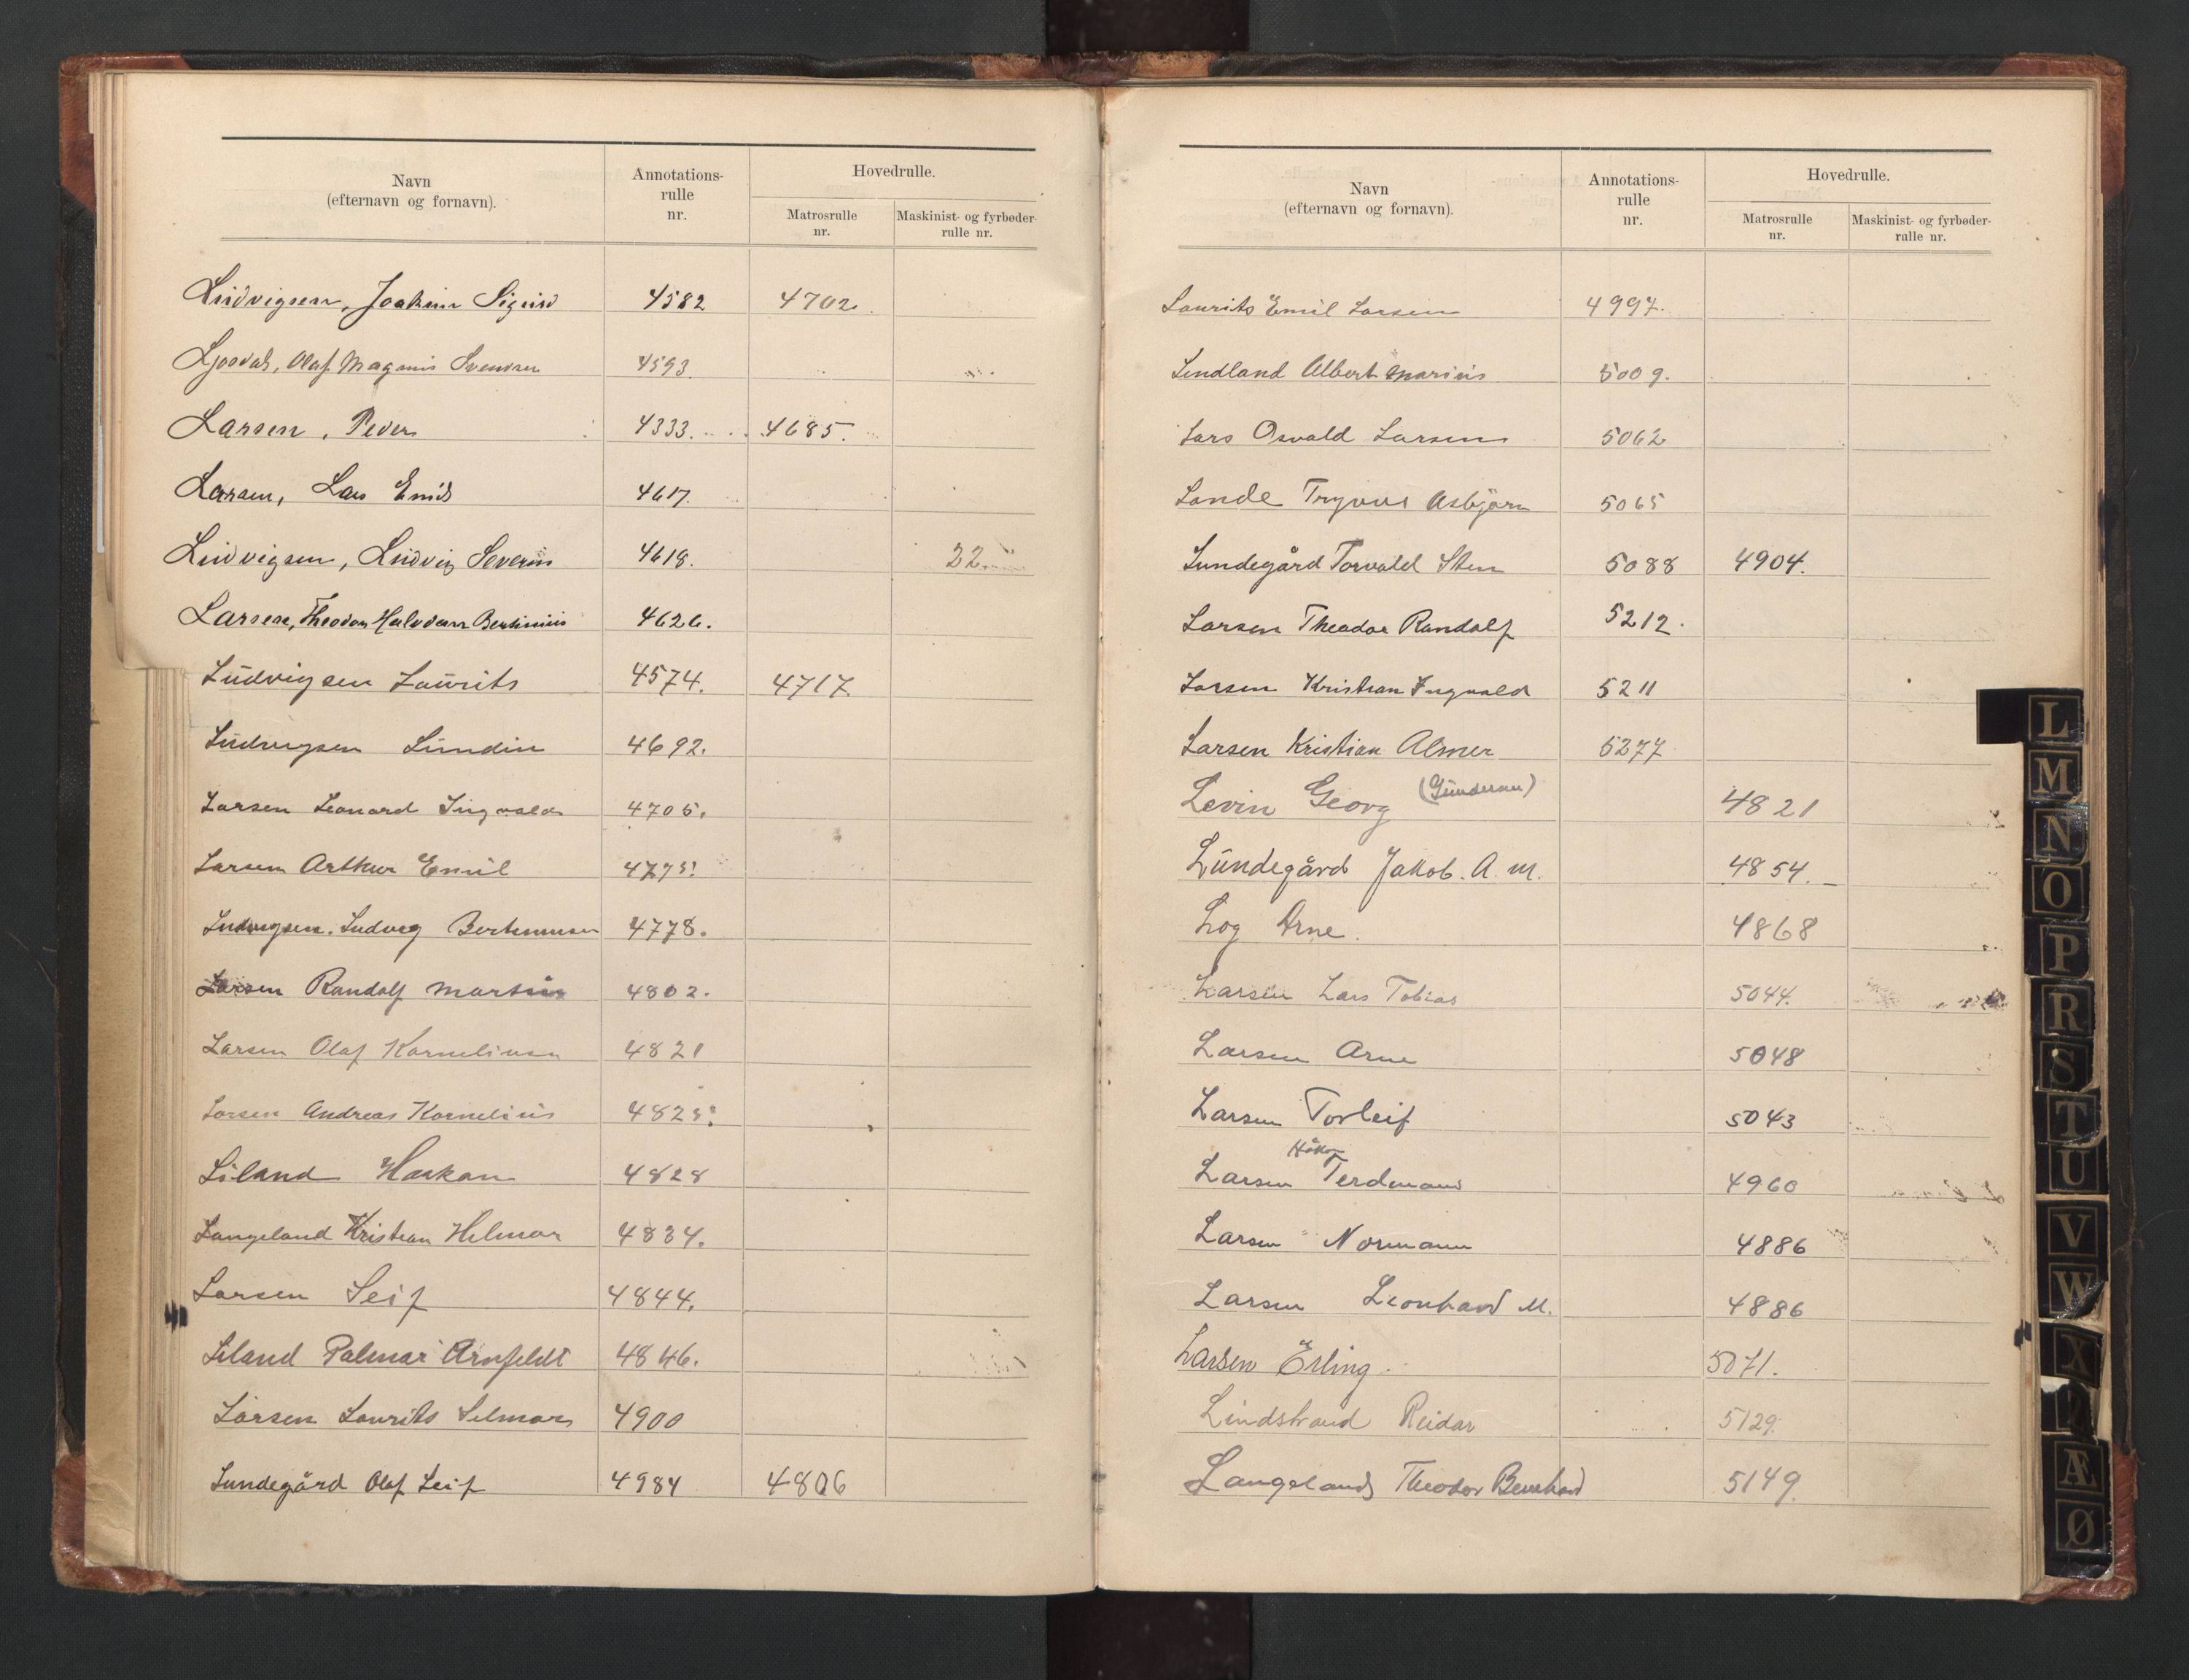 Navn
(efternavn og fornavn).
Annotations-
rulle
nr.
Hovedrulle.
Matrosrulle
nr.
Maskinist- og fyrbøder-
rulle nr.
Ludvigsen, Joakim Sigurd 4582 4702.
Olaf Magnus Svendsen 4593.
Larsen, Peder 4333. 4685.
Larsen, Lars Emil 4617.
Ludvigsen, Ludvig Severin 4618. 22.
Larsen, Theodor Halvdan Bertinius 4626.
Ludvigsen Laurits 4574. 4717.
Ludvigsen Lundin 4692.
Larsen Leonard Ingvald 4705.
Larsen Arthur Emil 4775.
Ludvigsen. Ludvig 4778.
Larsen Randolf Martin 4802.
Larsen Olaf Kornelius 4821
Larsen Andreas Kornelius 4825.
Liland Haakan 4828
Langeland Kristian Helmar 4834.
Larsen Leif 4844.
Liland Palmar Arnfeldt 4846.
Larsen Laurits Selmar 4900
Lundegård Olaf Leif 4984 4806
Navn
(efternavn og fornavn).
Annotations-
rulle
nr.
Hovedrulle.
Matrosrulle
nr.
Maskinist- og fyrbøder-
rulle nr.
Laurits Emil Larsen 4997.
Lindland Albert Marius 5009.
Lars Osvald Larsen 5062
Lande Trygve Asbjørn 5065
Lundegård Torvald Sten 5088 4904.
Larsen Theodor Randolf 5212.
Larsen Kristian Ingvald 5211
Larsen Kristian Almer 5277
Levin Georg (Gundersen) 4821
Lundegård Jakob. A. M. 4854.
Log Arne. 4868
Larsen Lars Tobias 5044.
Larsen Arne 5048
Larsen Torleif 5043
Håkon
Larsen Ferdinand 4960
Larsen Normann 4886
Larsen Leonhard M. 4886
Larsen Erling. 5071.
Lindstrand Reidar 5129.
Langeland Theodor Bernhard 5149.
L
M
N
O
P
R
S
T
U
V
W
X
Æ
Ø